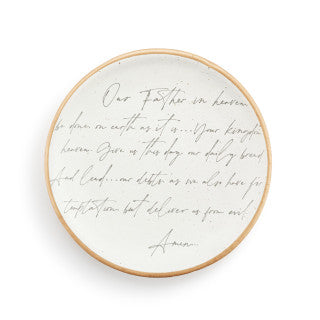 Our Father in heaven
be done on earth as it is...Your kingdo
heaven. Give us this day our daily bread
And lead...our debts as we also have fo
temptation but deliver us from evil.
Amen.